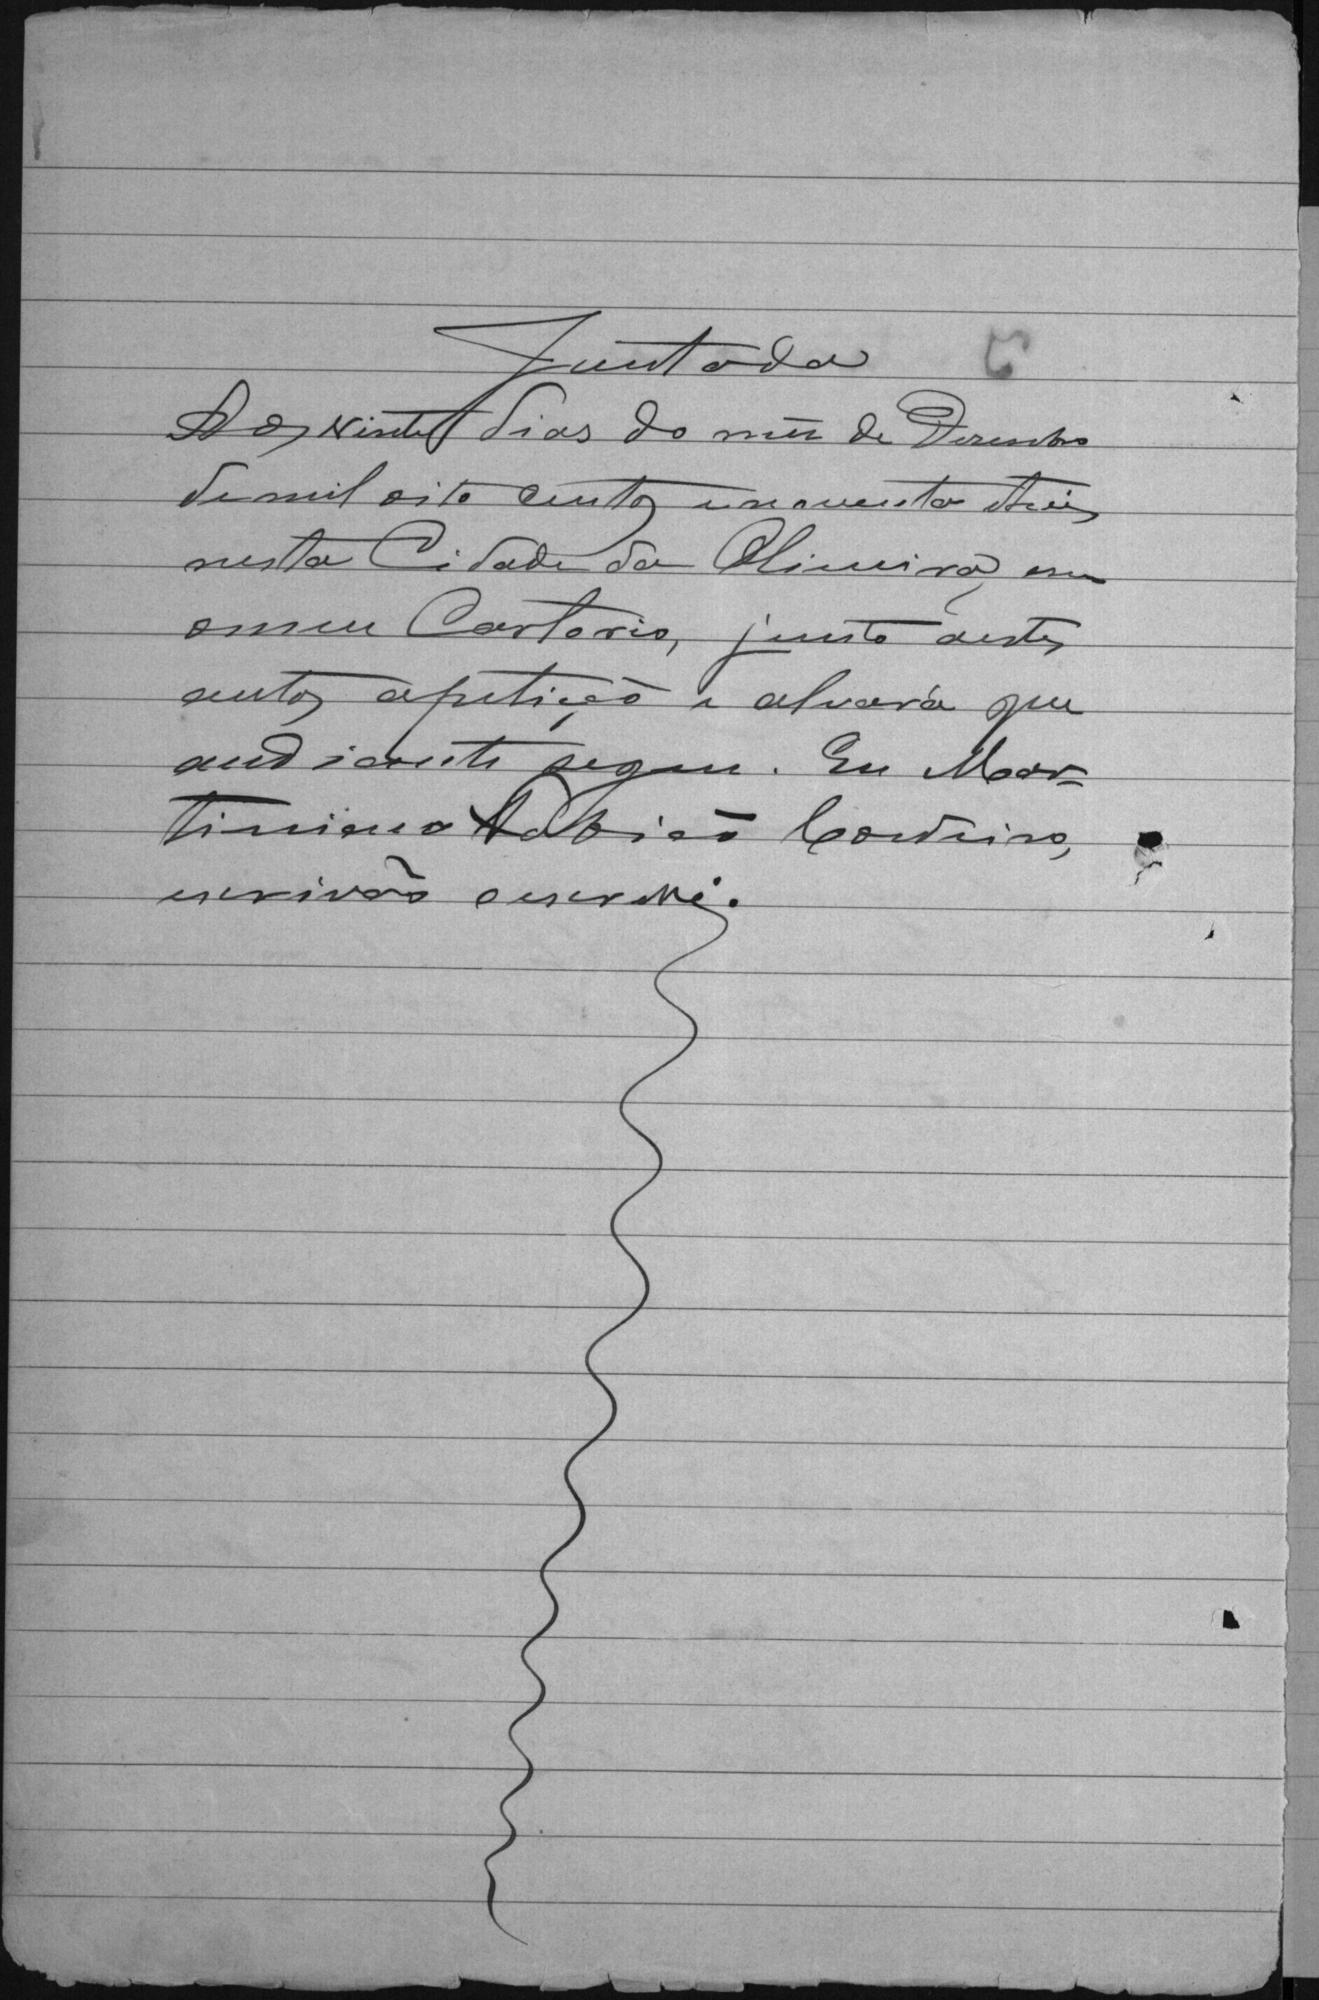 Juntada
Aos vinte dias do mez de Dezembro
de mil oito centos e noventa e tres
nesta Cidade da Oliveira, em
o meu Cartorio, junto a estes
autos a petição e alvará que
audiante segue. Eu Mar=
timiano Cordeiro,
escrivão o escrevi.